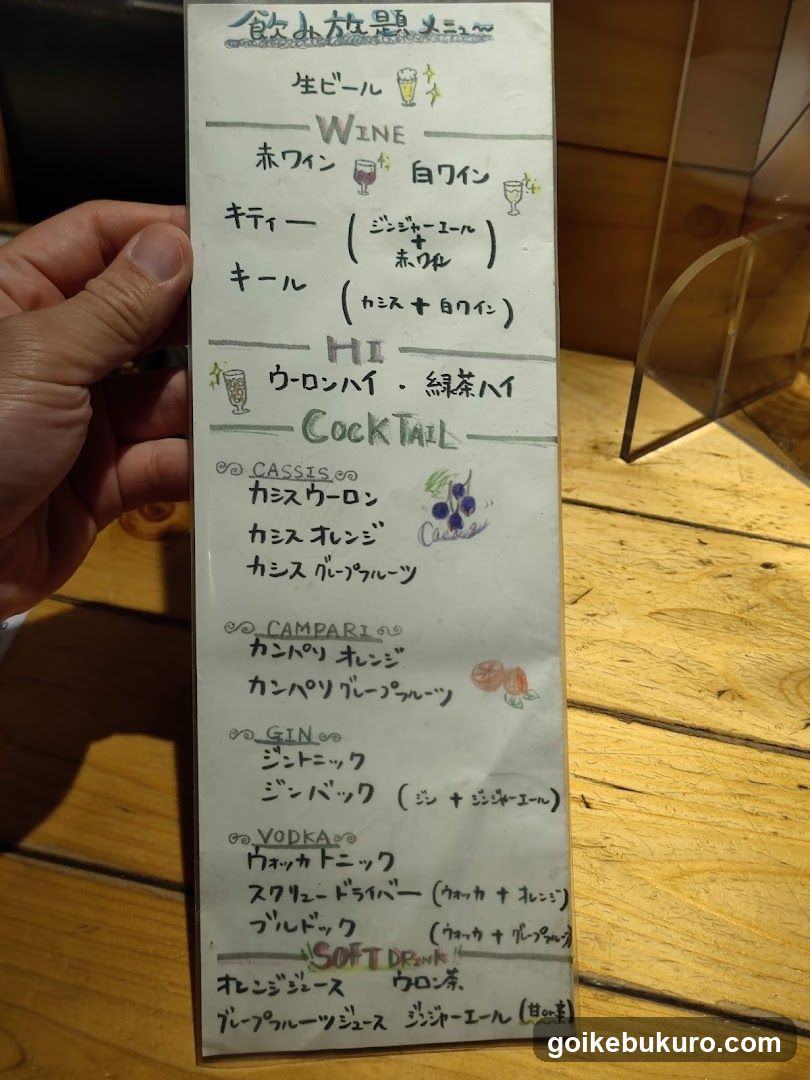 飲み放題メニュー
生ビール
WINE
赤ワイン 白ワイン
キティー (ジンジャーエール + 赤ワイン)
キール (カシス + 白ワイン)
HI
ウーロンハイ ・ 緑茶ハイ
COCKTAIL
CASSIS
カシスウーロン
カシスオレンジ
Cassis
カシスグレープフルーツ
CAMPARI
カンパリオレンジ
カンパリグレープフルーツ
GIN
ジントニック
ジンバック (ジン + ジンジャーエール)
VODKA
ウォッカトニック
スクリュードライバー (ウォッカ + オレンジ)
ブルドック (ウォッカ + グレープフルーツ)
SOFT DRINK
オレンジジュース ウロン茶
グレープフルーツジュース ジンジャーエール (甘or辛)
goikebukuro.com